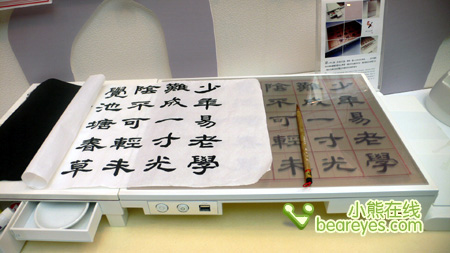 少年易老學
難成一寸光
陰不可輕未
少年易老學
難成一寸光
陰不可輕未
覺池塘春草
小熊在线
beareyes.com